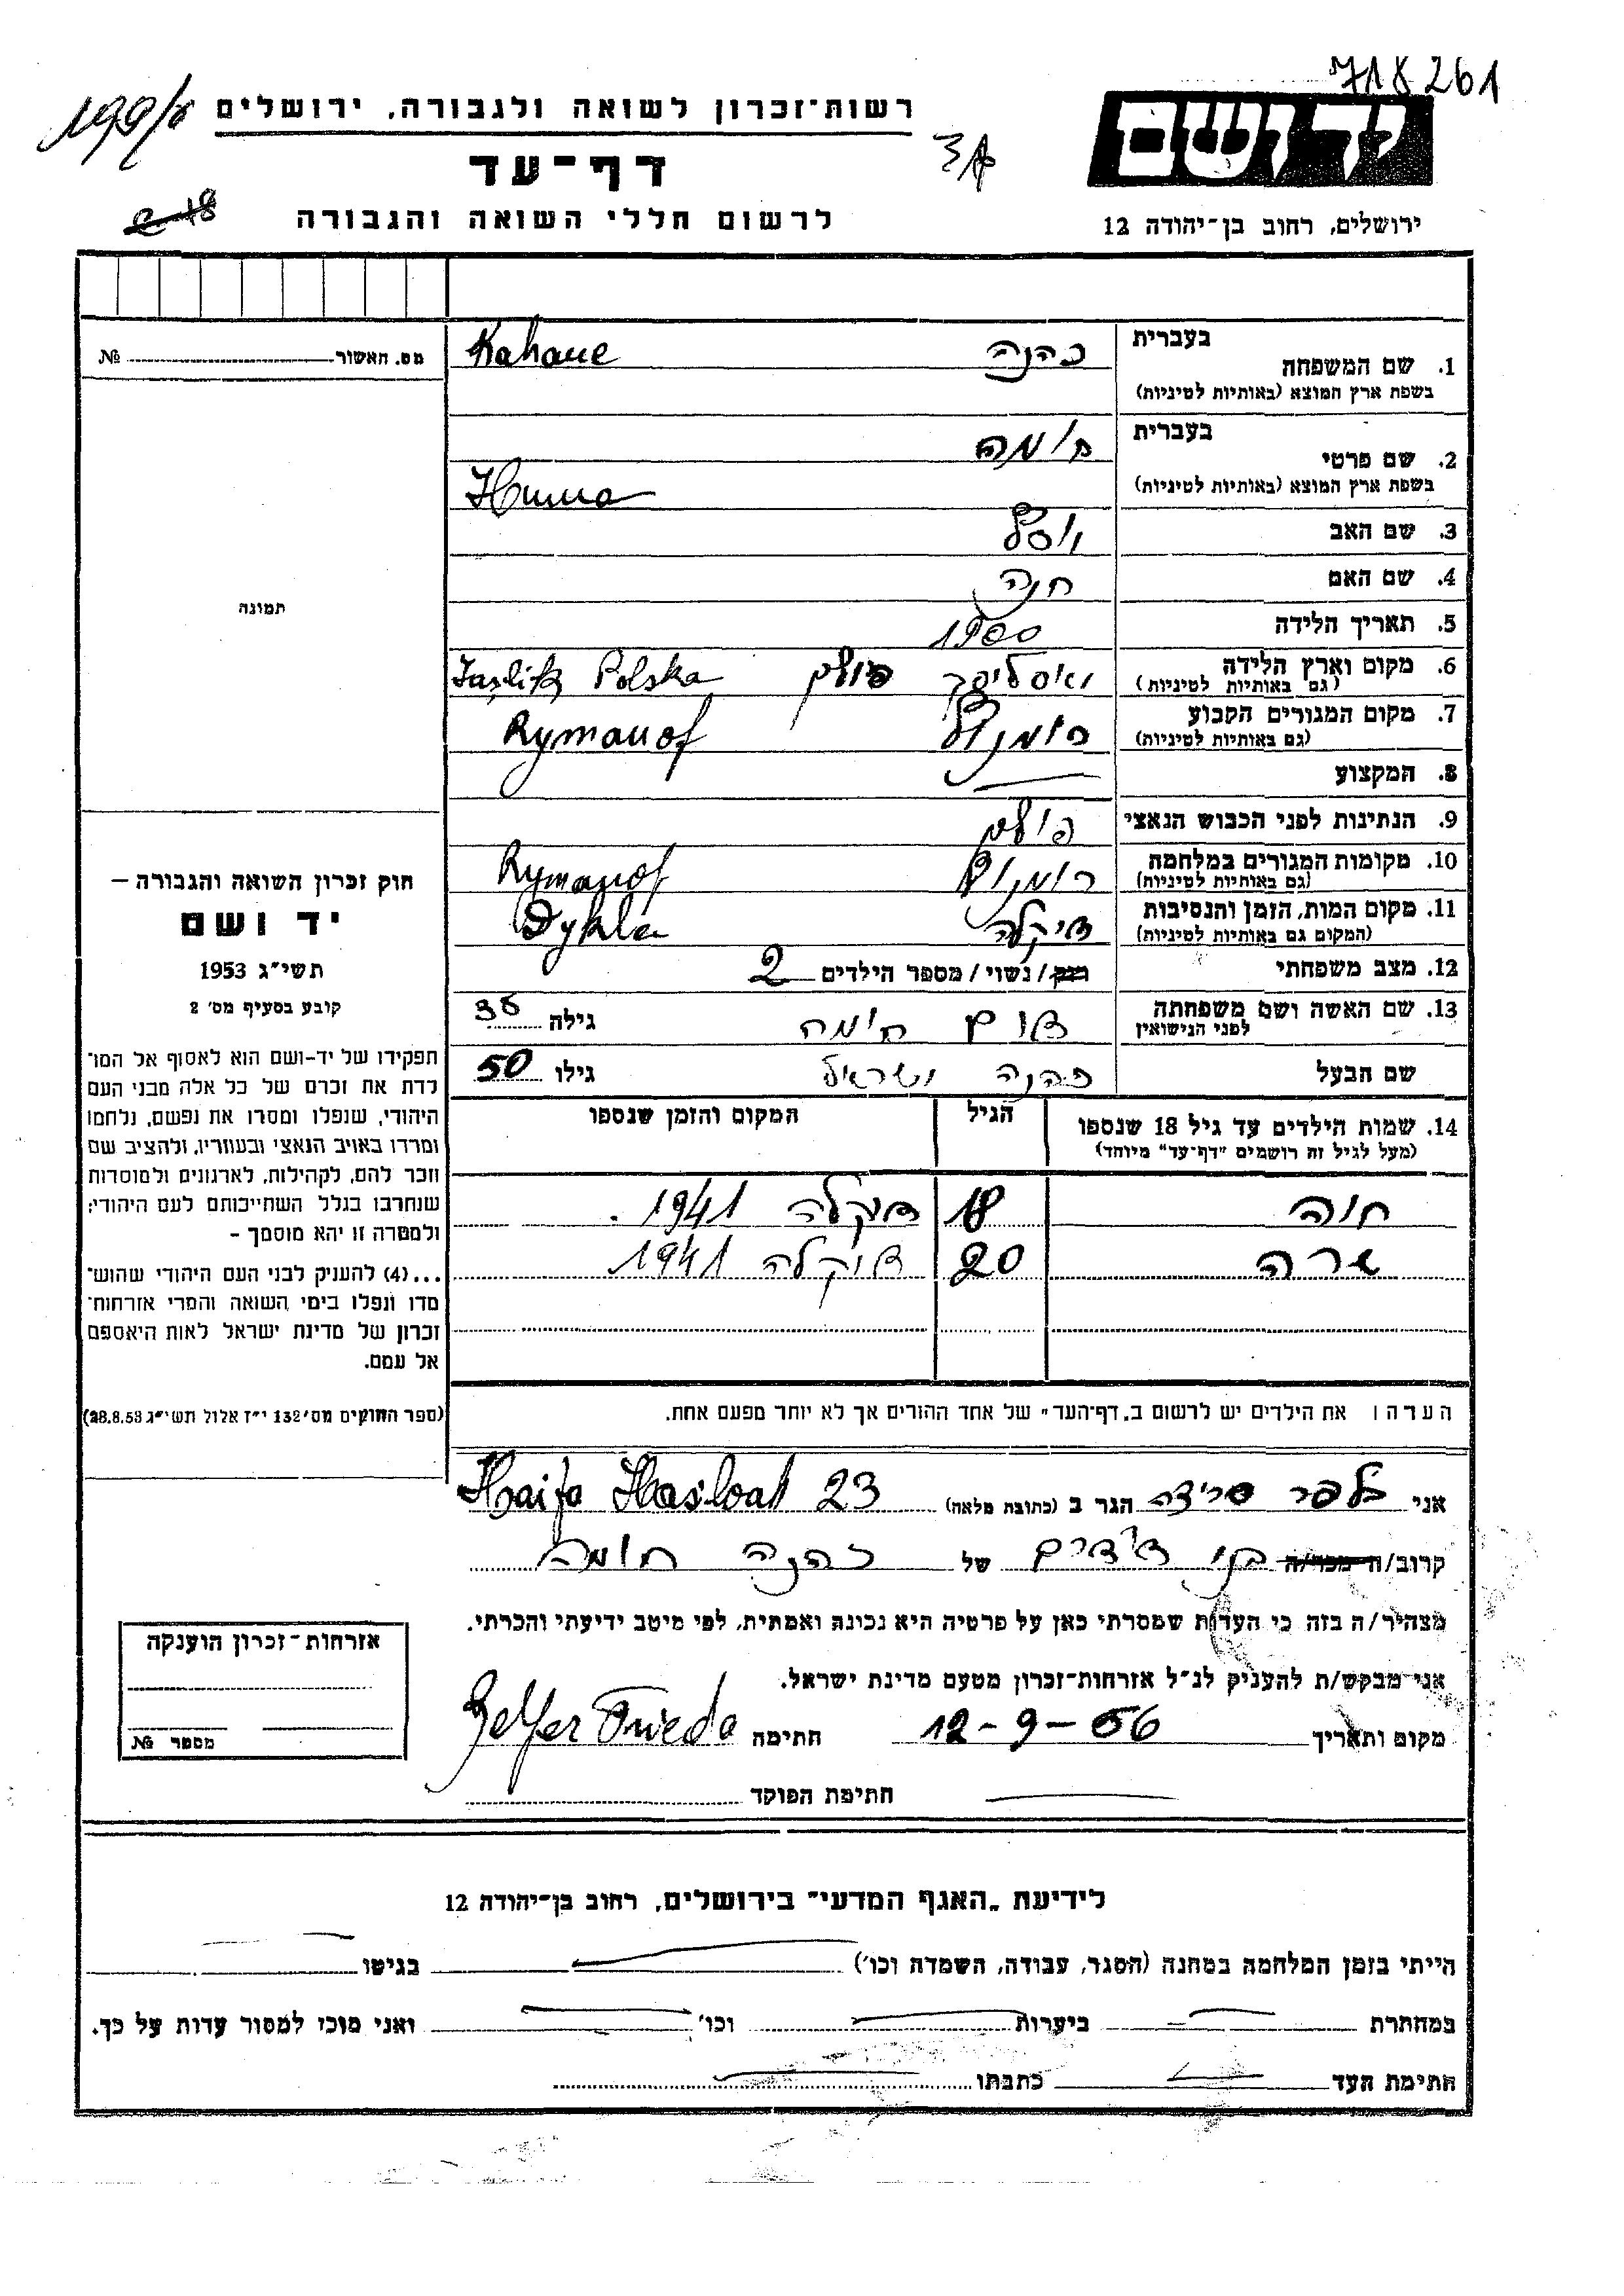 718261
רשות־זכרון לשואה ולגבורה, ירושלים
דף־עד
לרשום חללי השואה והגבורה
יד ושם
ירושלים, רחוב בן־יהודה 12
מס. האשור № 
בעברית
1. שם המשפחה כהנה Kahane
בשפת ארץ המוצא (באותיות לטיניות)
בעברית
2. שם פרטי חומה
בשפת ארץ המוצא (באותיות לטיניות) Huma
3. שם האב יוסל
4. שם האם חנה
5. תאריך הלידה 1900
6. מקום וארץ הלידה פולין Polska
(גם באותיות לטיניות)
7. מקום המגורים הקבוע רומנוב Rymanof
(גם באותיות לטיניות)
8. המקצוע
9. הנתינות לפני הכבוש הנאצי פולין
10. מקומות המגורים במלחמה רומנוב Rymanof
(גם באותיות לטיניות)
11. מקום המות, הזמן והנסיבות דיקלה Dykla
(המקום גם באותיות לטיניות)
12. מצב משפחתי רוק/ נשוי/ מספר הילדים 2
13. שם האשה ושם משפחתה חומה גילה 38
לפני הנישואין
שם הבעל כהנה ישראל גילו 50
14. שמות הילדים עד גיל 18 שנספו הגיל המקום והזמן שנספו
(מעל לגיל זה רושמים "דף־עד" מיוחד)
חנה 18 דוקלה 1941.
שרה 20 דוקלה 1941
הערה: את הילדים יש לרשום ב„דף־העד" של אחד ההורים אך לא יותר מפעם אחת.
תמונה
חוק זכרון השואה והגבורה –
יד ושם
תשי״ג 1953
קובע בסעיף מס׳ 2
תפקידו של יד־ושם הוא לאסוף אל המו־
לדת את זכרם של כל אלה מבני העם
היהודי, שנפלו ומסרו את נפשם, נלחמו
ומרדו באויב הנאצי ובעוזריו, ולהציב שם
וזכר להם, לקהילות, לארגונים ולמוסדות
שנחרבו בגלל השתייכותם לעם היהודי;
ולמטרה זו יהא מוסמך –
...(4) להעניק לבני העם היהודי שהוש־
מדו ונפלו בימי השואה והמרי אזרחות־
זכרון של מדינת ישראל לאות היאספם
אל עמם.
(ספר החוקים מס׳ 132 י״ז אלול תשי״ג 28.8.53)
אני בלפר פרידה הגר ב (כתובת מלאה) Haifa 23
קרוב/ה מכר/ה בני דודים של כהנה חומה
מצהיר/ה בזה כי העדות שמסרתי כאן על פרטיה היא נכונה ואמתית, לפי מיטב ידיעתי והכרתי.
אני מבקש/ת להעניק לנ״ל אזרחות־זכרון מטעם מדינת ישראל.
מקום ותאריך 12-9-56 חתימה Belfer Frieda
חתימת הפוקד
אזרחות־זכרון הוענקה
מספר №
לידיעת „האגף המדעי" בירושלים, רחוב בן־יהודה 12
הייתי בזמן המלחמה במחנה (הסגר, עבודה, השמדה וכו׳) בגיטו
במחתרת ביערות וכו׳ ואני מוכן למסור עדות על כך.
חתימת העד כתבתו